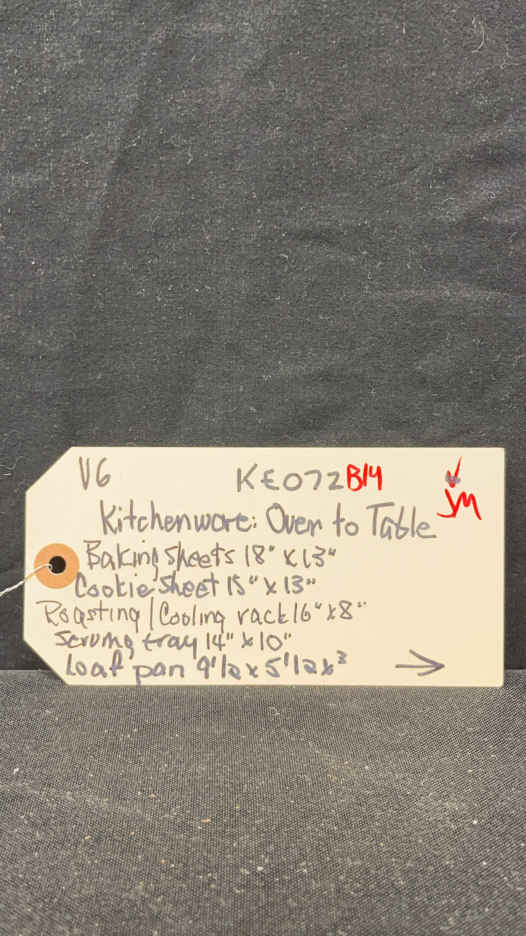 V6 KE072 B14
JM
Kitchenware: Over to Table
Baking sheets 18" x 13"
Cookie sheet 15" x 13"
Roasting / Cooling rack 16" x 8"
Serving tray 14" x 10"
Loaf pan 9 1/2 x 5 1/2 x 3
→